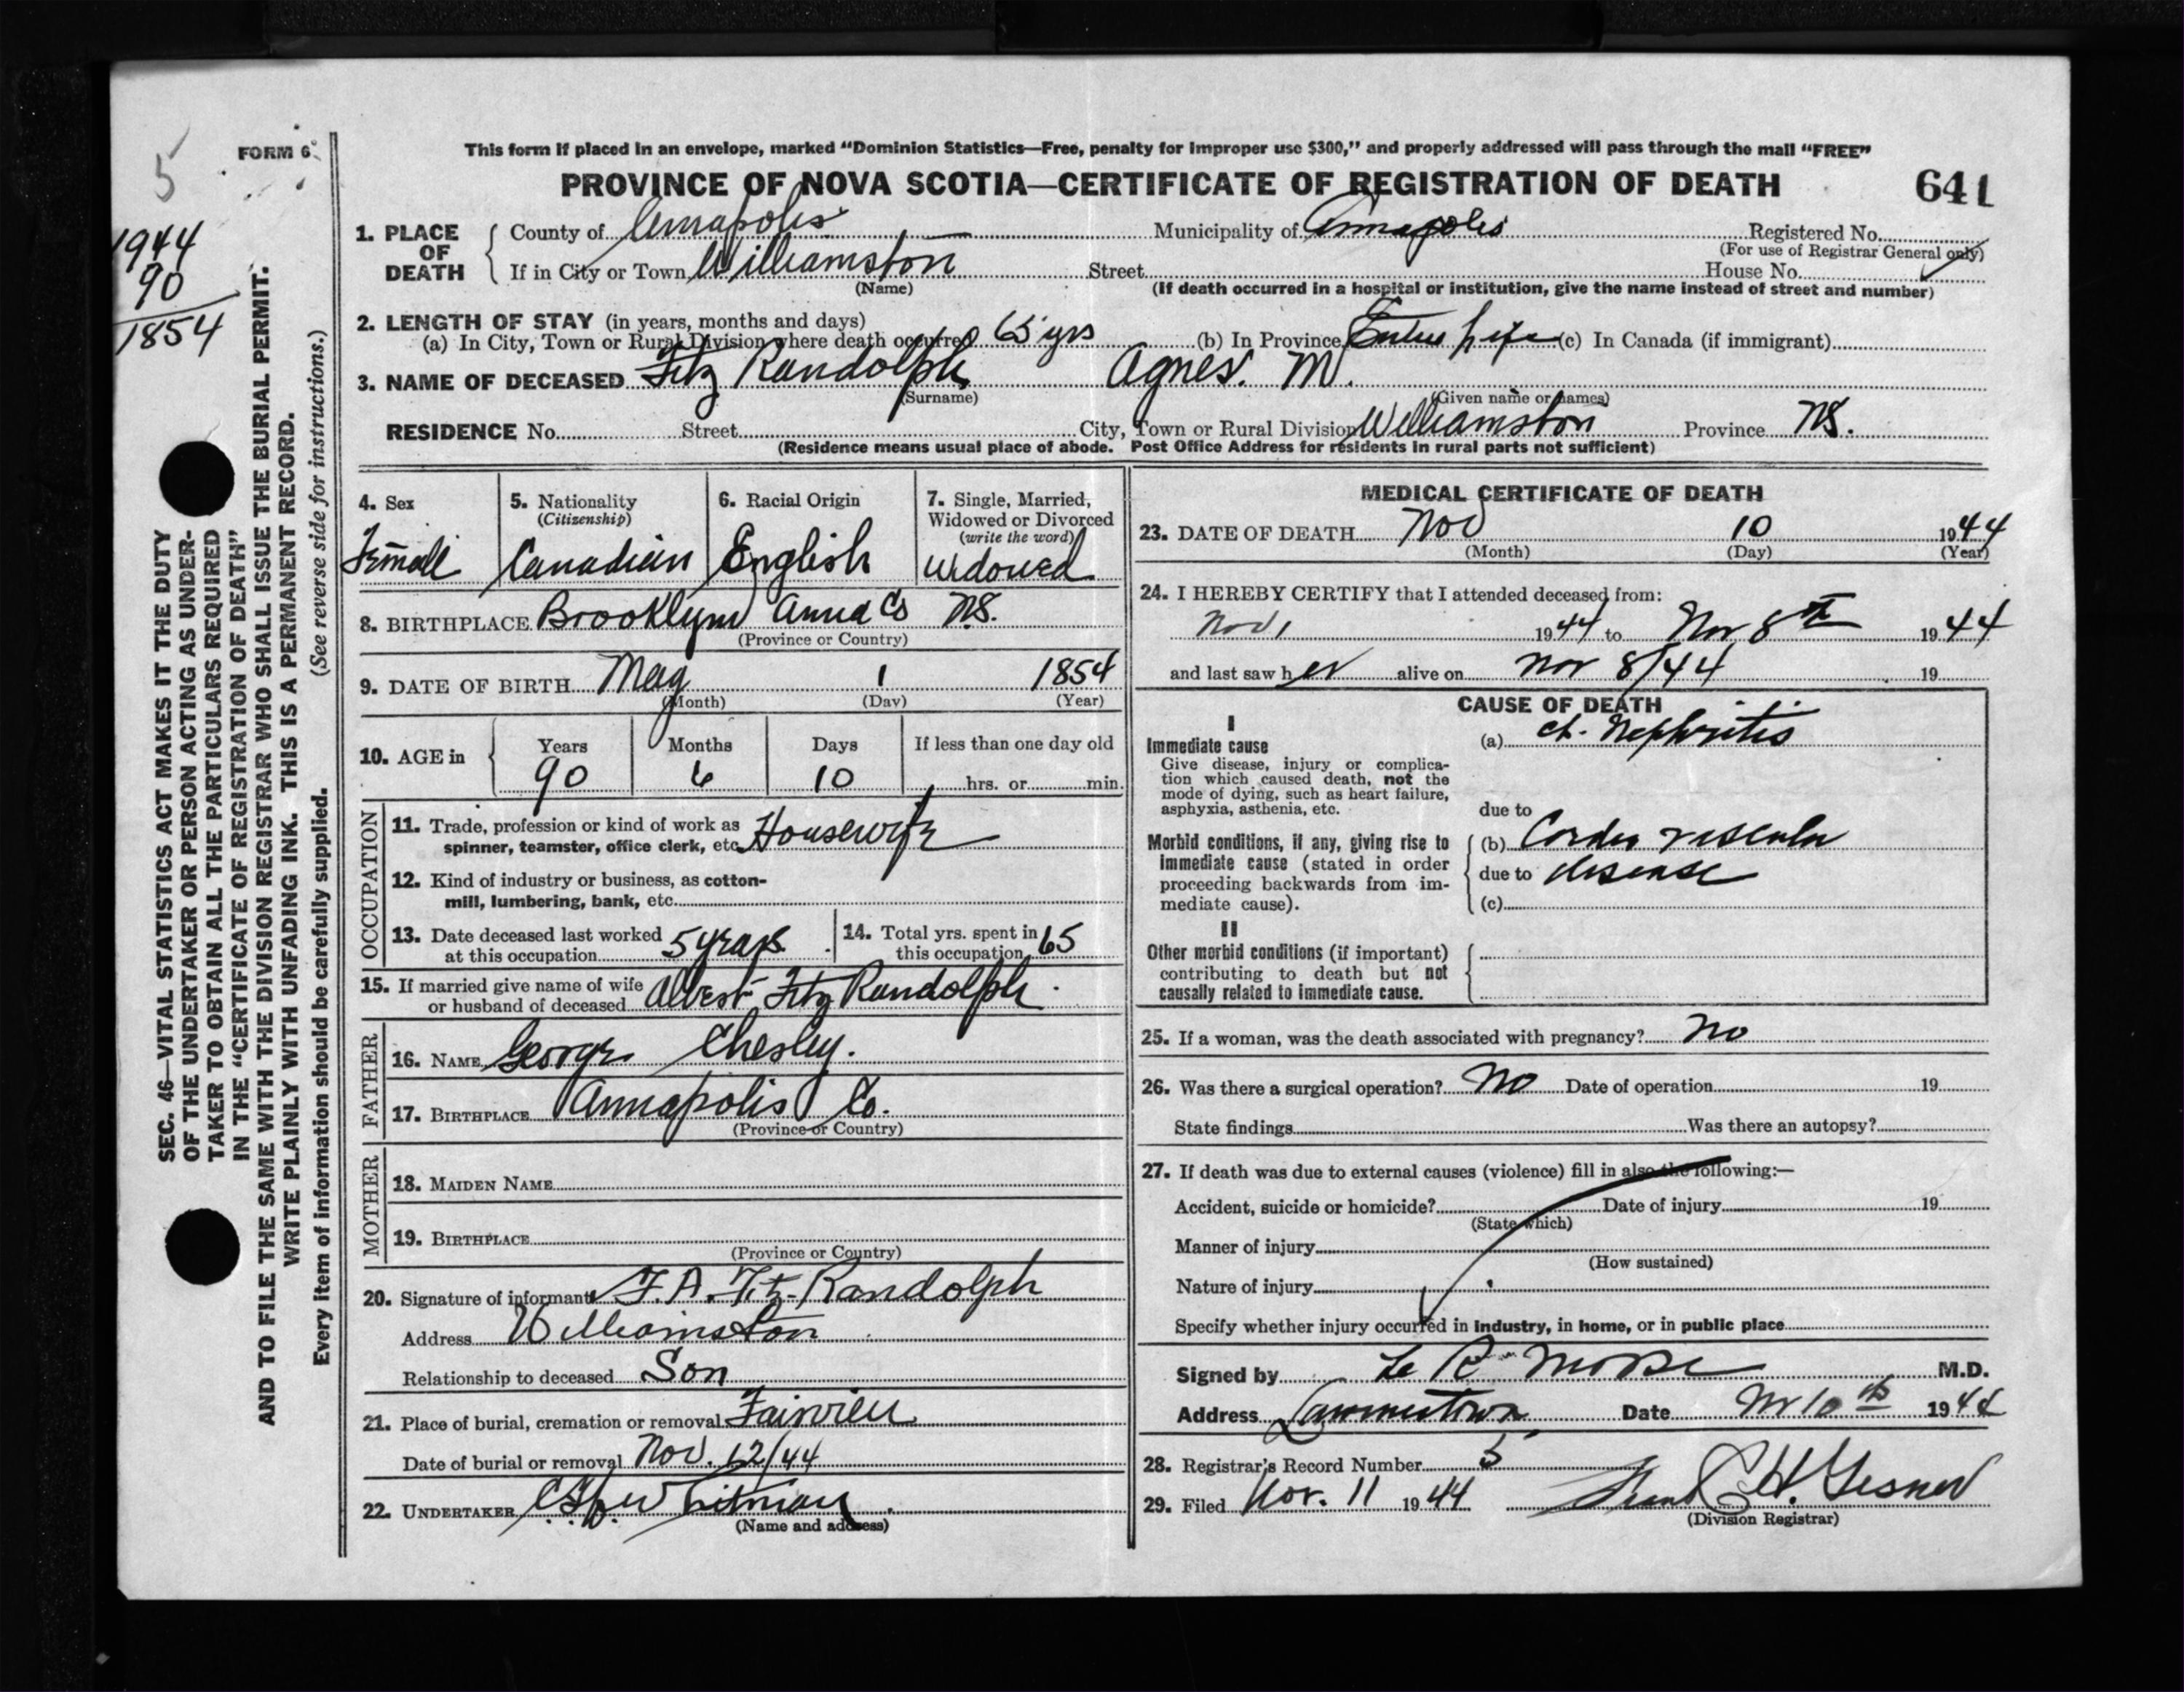 5
FORM 6
This form if placed in an envelope, marked "Dominion Statistics—Free, penalty for improper use $300," and properly addressed will pass through the mail "FREE"
PROVINCE OF NOVA SCOTIA—CERTIFICATE OF REGISTRATION OF DEATH
641
1944
90
1854
SEC. 46—VITAL STATISTICS ACT MAKES IT THE DUTY
OF THE UNDERTAKER OR PERSON ACTING AS UNDER-
TAKER TO OBTAIN ALL THE PARTICULARS REQUIRED
IN THE "CERTIFICATE OF REGISTRATION OF DEATH"
AND TO FILE THE SAME WITH THE DIVISION REGISTRAR WHO SHALL ISSUE THE BURIAL PERMIT.
WRITE PLAINLY WITH UNFADING INK. THIS IS A PERMANENT RECORD.
Every item of information should be carefully supplied. (See reverse side for instructions.)
1. PLACE OF DEATH
County of Annapolis Municipality of Annapolis Registered No.
(For use of Registrar General only)
If in City or Town Williamston Street House No.
(Name) (If death occurred in a hospital or institution, give the name instead of street and number)
2. LENGTH OF STAY (in years, months and days)
(a) In City, Town or Rural Division where death occurred 65 yrs (b) In Province Entire Life (c) In Canada (if immigrant)
3. NAME OF DECEASED Fitz Randolph Agnes. M.
(Surname) (Given name or names)
RESIDENCE No. Street City, Town or Rural Division Williamston Province N.S.
(Residence means usual place of abode. Post Office Address for residents in rural parts not sufficient)
4. Sex
Female
5. Nationality
(Citizenship)
Canadian
6. Racial Origin
English
7. Single, Married,
Widowed or Divorced
(write the word)
Widowed
8. BIRTHPLACE Brooklyn Anna Co N.S.
(Province or Country)
9. DATE OF BIRTH May 1 1854
(Month) (Day) (Year)
10. AGE in
Years Months Days If less than one day old
90 6 10 hrs. or min.
OCCUPATION
11. Trade, profession or kind of work as
spinner, teamster, office clerk, etc. Housewife
12. Kind of industry or business, as cotton-
mill, lumbering, bank, etc.
13. Date deceased last worked
at this occupation 5 years
14. Total yrs. spent in
this occupation 65
15. If married give name of wife
or husband of deceased Albert Fitz Randolph.
FATHER
16. NAME George Chesley.
17. BIRTHPLACE Annapolis Co.
(Province or Country)
MOTHER
18. MAIDEN NAME
19. BIRTHPLACE
(Province or Country)
20. Signature of informant F. A. Fitz-Randolph
Address Williamston
Relationship to deceased Son
21. Place of burial, cremation or removal Fairview
Date of burial or removal Nov. 12/44
22. UNDERTAKER Whitman
(Name and address)
MEDICAL CERTIFICATE OF DEATH
23. DATE OF DEATH Nov 10 1944
(Month) (Day) (Year)
24. I HEREBY CERTIFY that I attended deceased from:
Nov 1 1944 to Nov 8th 1944
and last saw her alive on Nov 8/44 19
CAUSE OF DEATH
I
Immediate cause
Give disease, injury or complica-
tion which caused death, not the
mode of dying, such as heart failure,
asphyxia, asthenia, etc.
(a) Ch. Nephritis
due to
Morbid conditions, if any, giving rise to
immediate cause (stated in order
proceeding backwards from im-
mediate cause).
(b) Cardio vascular
due to disease
(c)
II
Other morbid conditions (if important)
contributing to death but not
causally related to immediate cause.
25. If a woman, was the death associated with pregnancy? No
26. Was there a surgical operation? No Date of operation 19
State findings Was there an autopsy?
27. If death was due to external causes (violence) fill in also the following:—
Accident, suicide or homicide? Date of injury 19
(State which)
Manner of injury
(How sustained)
Nature of injury
Specify whether injury occurred in industry, in home, or in public place
Signed by L R Morse M.D.
Address Lawrencetown Date Nov 10th 1944
28. Registrar's Record Number 5
29. Filed Nov. 11 1944 Frank H. Gesner
(Division Registrar)